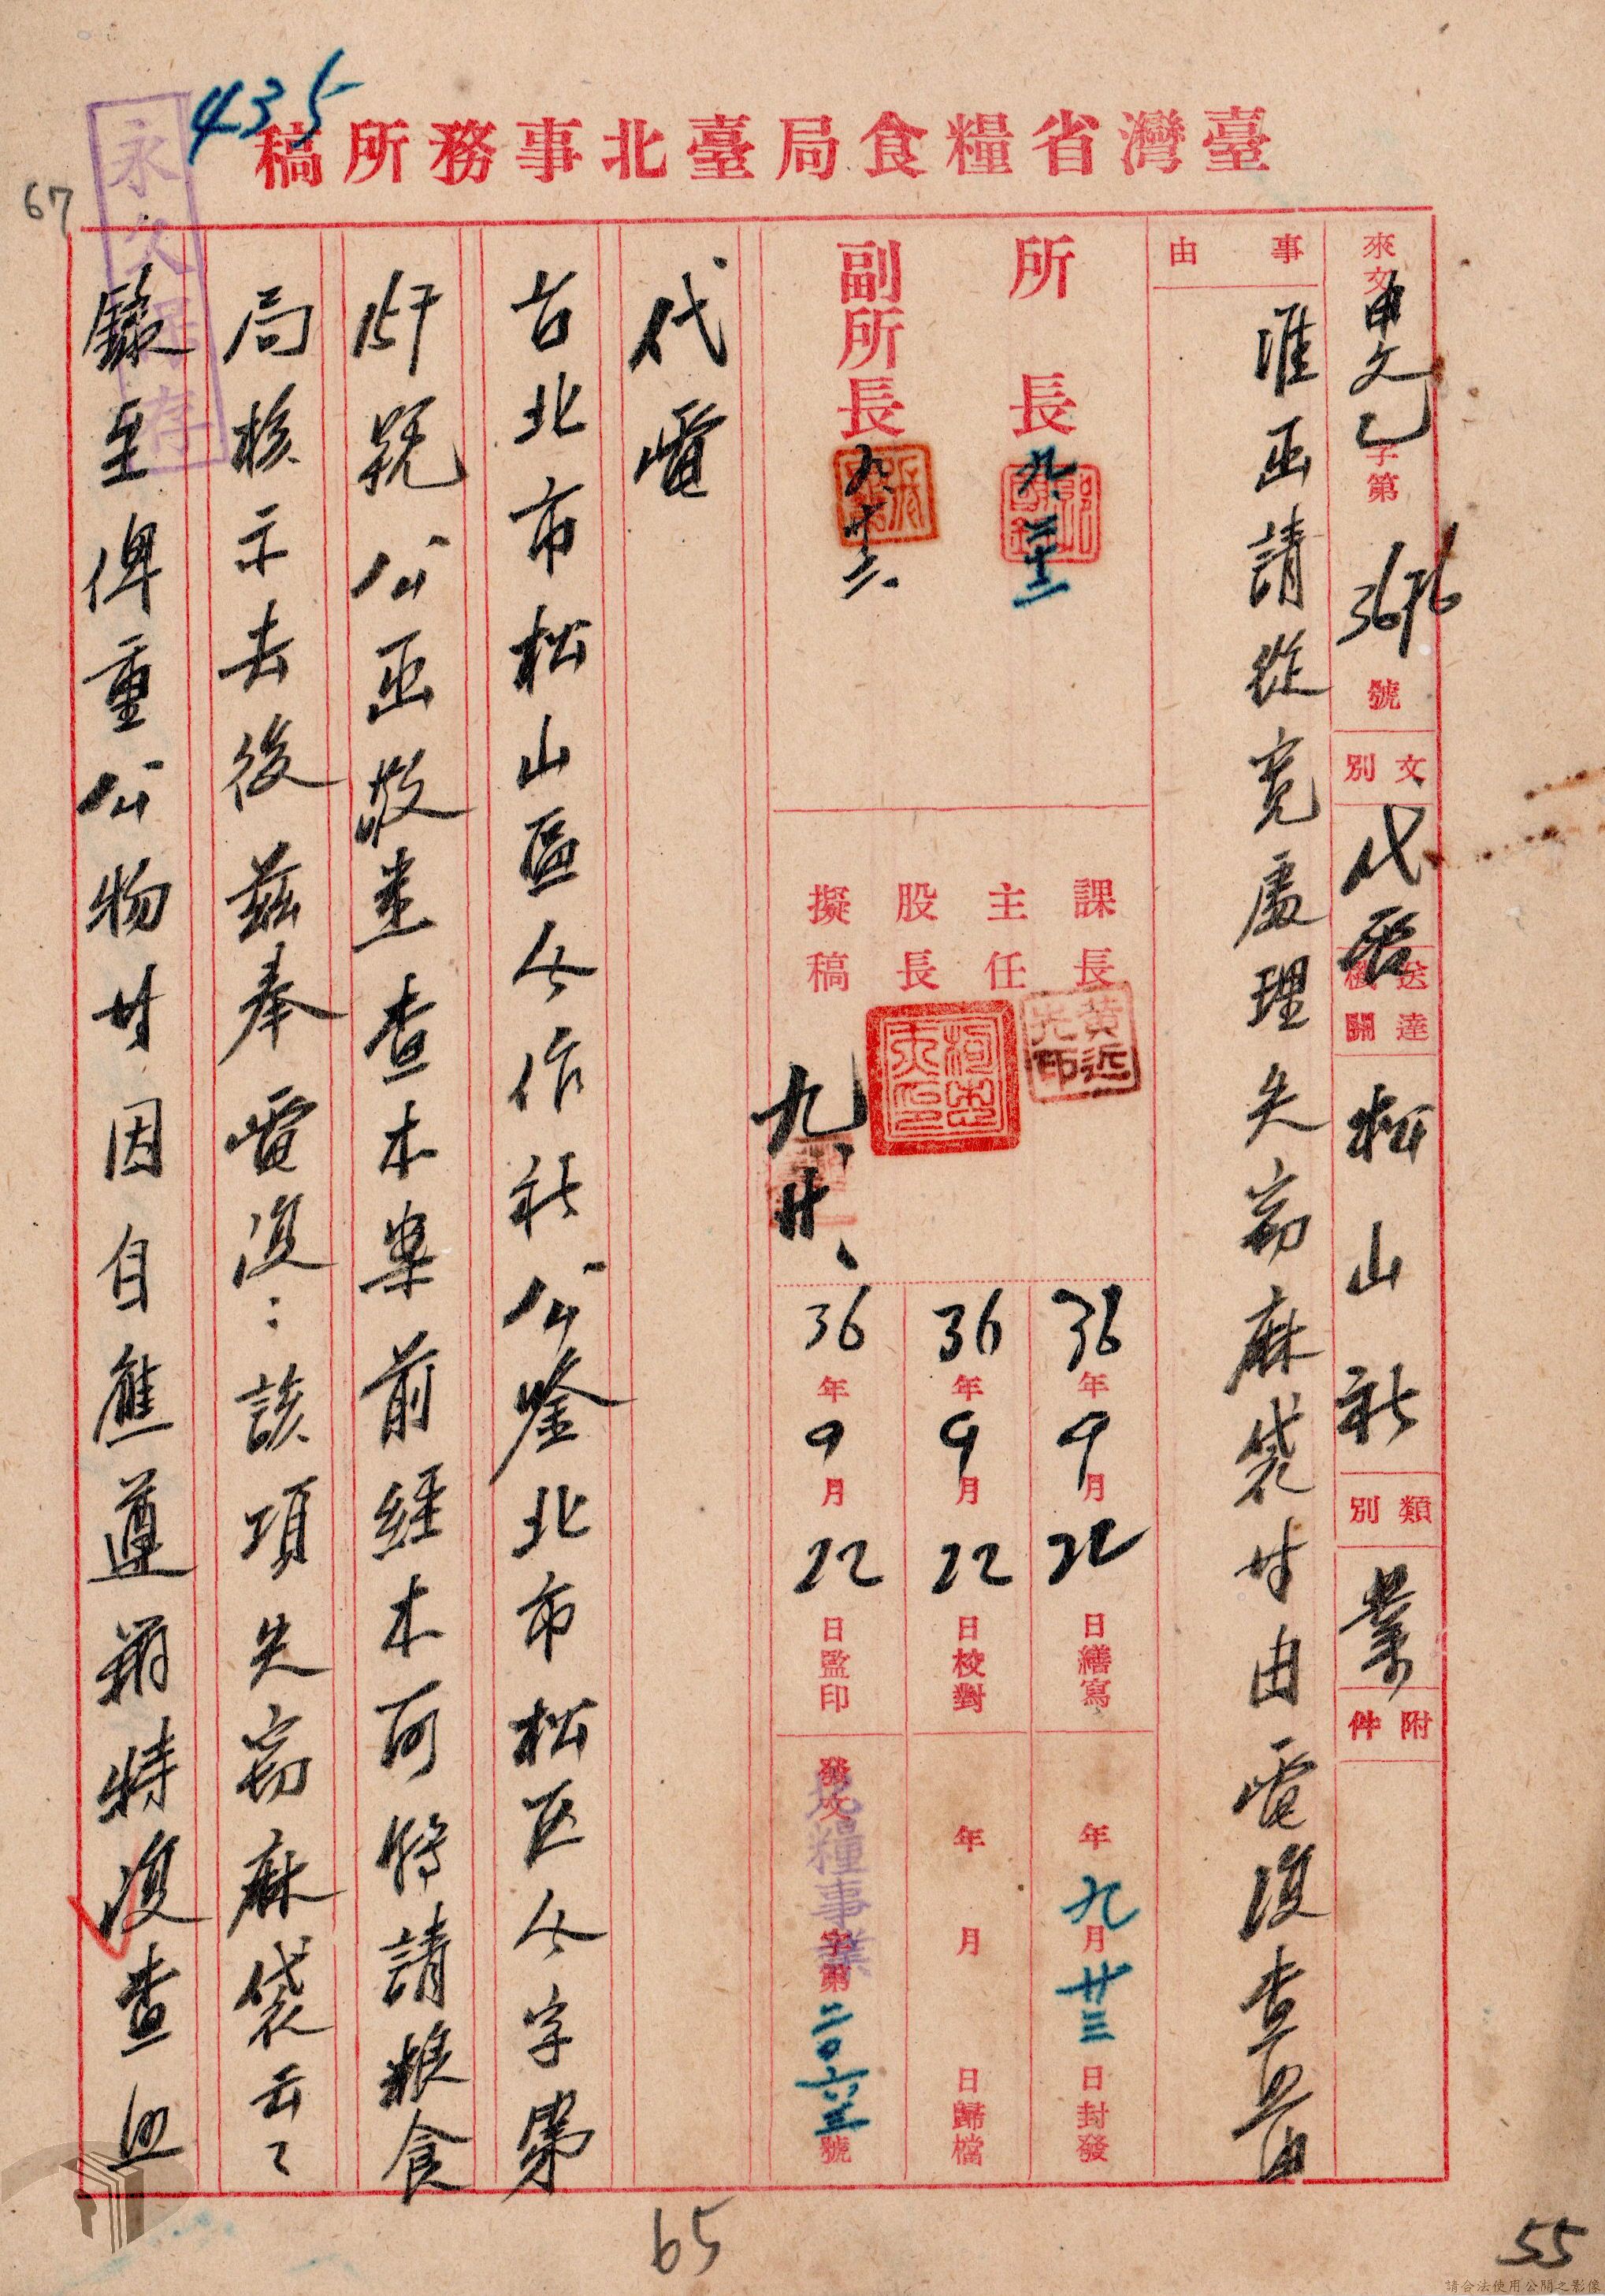 435
臺灣省糧食局臺北事務所稿
67
永久保存
來文 字第 3676 號
文別 代電
送達機關 松山社
類別 業
附件
事由
准函請從寬處理失竊麻袋廿由電復查照由
所長 九、廿三
副所長 九、廿三、
課長 主任 股長 擬稿
黃近光印
九、廿、
36年9月22日繕寫
36年9月22日校對
36年9月22日監印
年九月廿三日封發
年 月 日歸檔
發文 糧事業 字第二〇六三號
代電
台北市松山區合作社公鑒北市松区合字第
157號公函敬悉查本案前經本所轉請糧食
局核示去後茲奉電復：該項失竊麻袋云々
錄至俾重公物廿因自應遵辦特復查照
65
55
請合法使用公開之影像